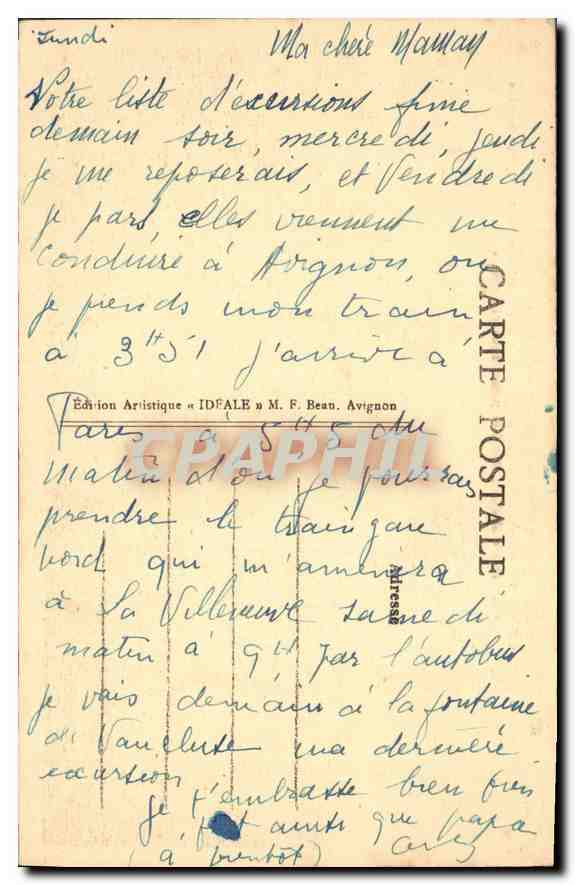 Lundi
Ma chère Maman
Votre liste d'excursions finie
demain soir, mercredi, jeudi
je me reposerais, et Vendredi
je pars, elles viennent me
conduire à Avignon, ou
je prends mon train
à 3H51 j'arrive à
Edition Artistique « IDEALE » M. F. Beau. Avignon
Paris à 5H5 du
matin d'ou je pourrai
prendre le train gare
nord qui m'amènera
à La Villeneuve samedi
matin à 9H par l'autobus
je vais demain à la fontaine
de Vaucluse ma dernière
excursion
je t'embrasse bien bien
fort ainsi que papa
(à bientôt)
CARTE POSTALE
Adresse
CAPHIL